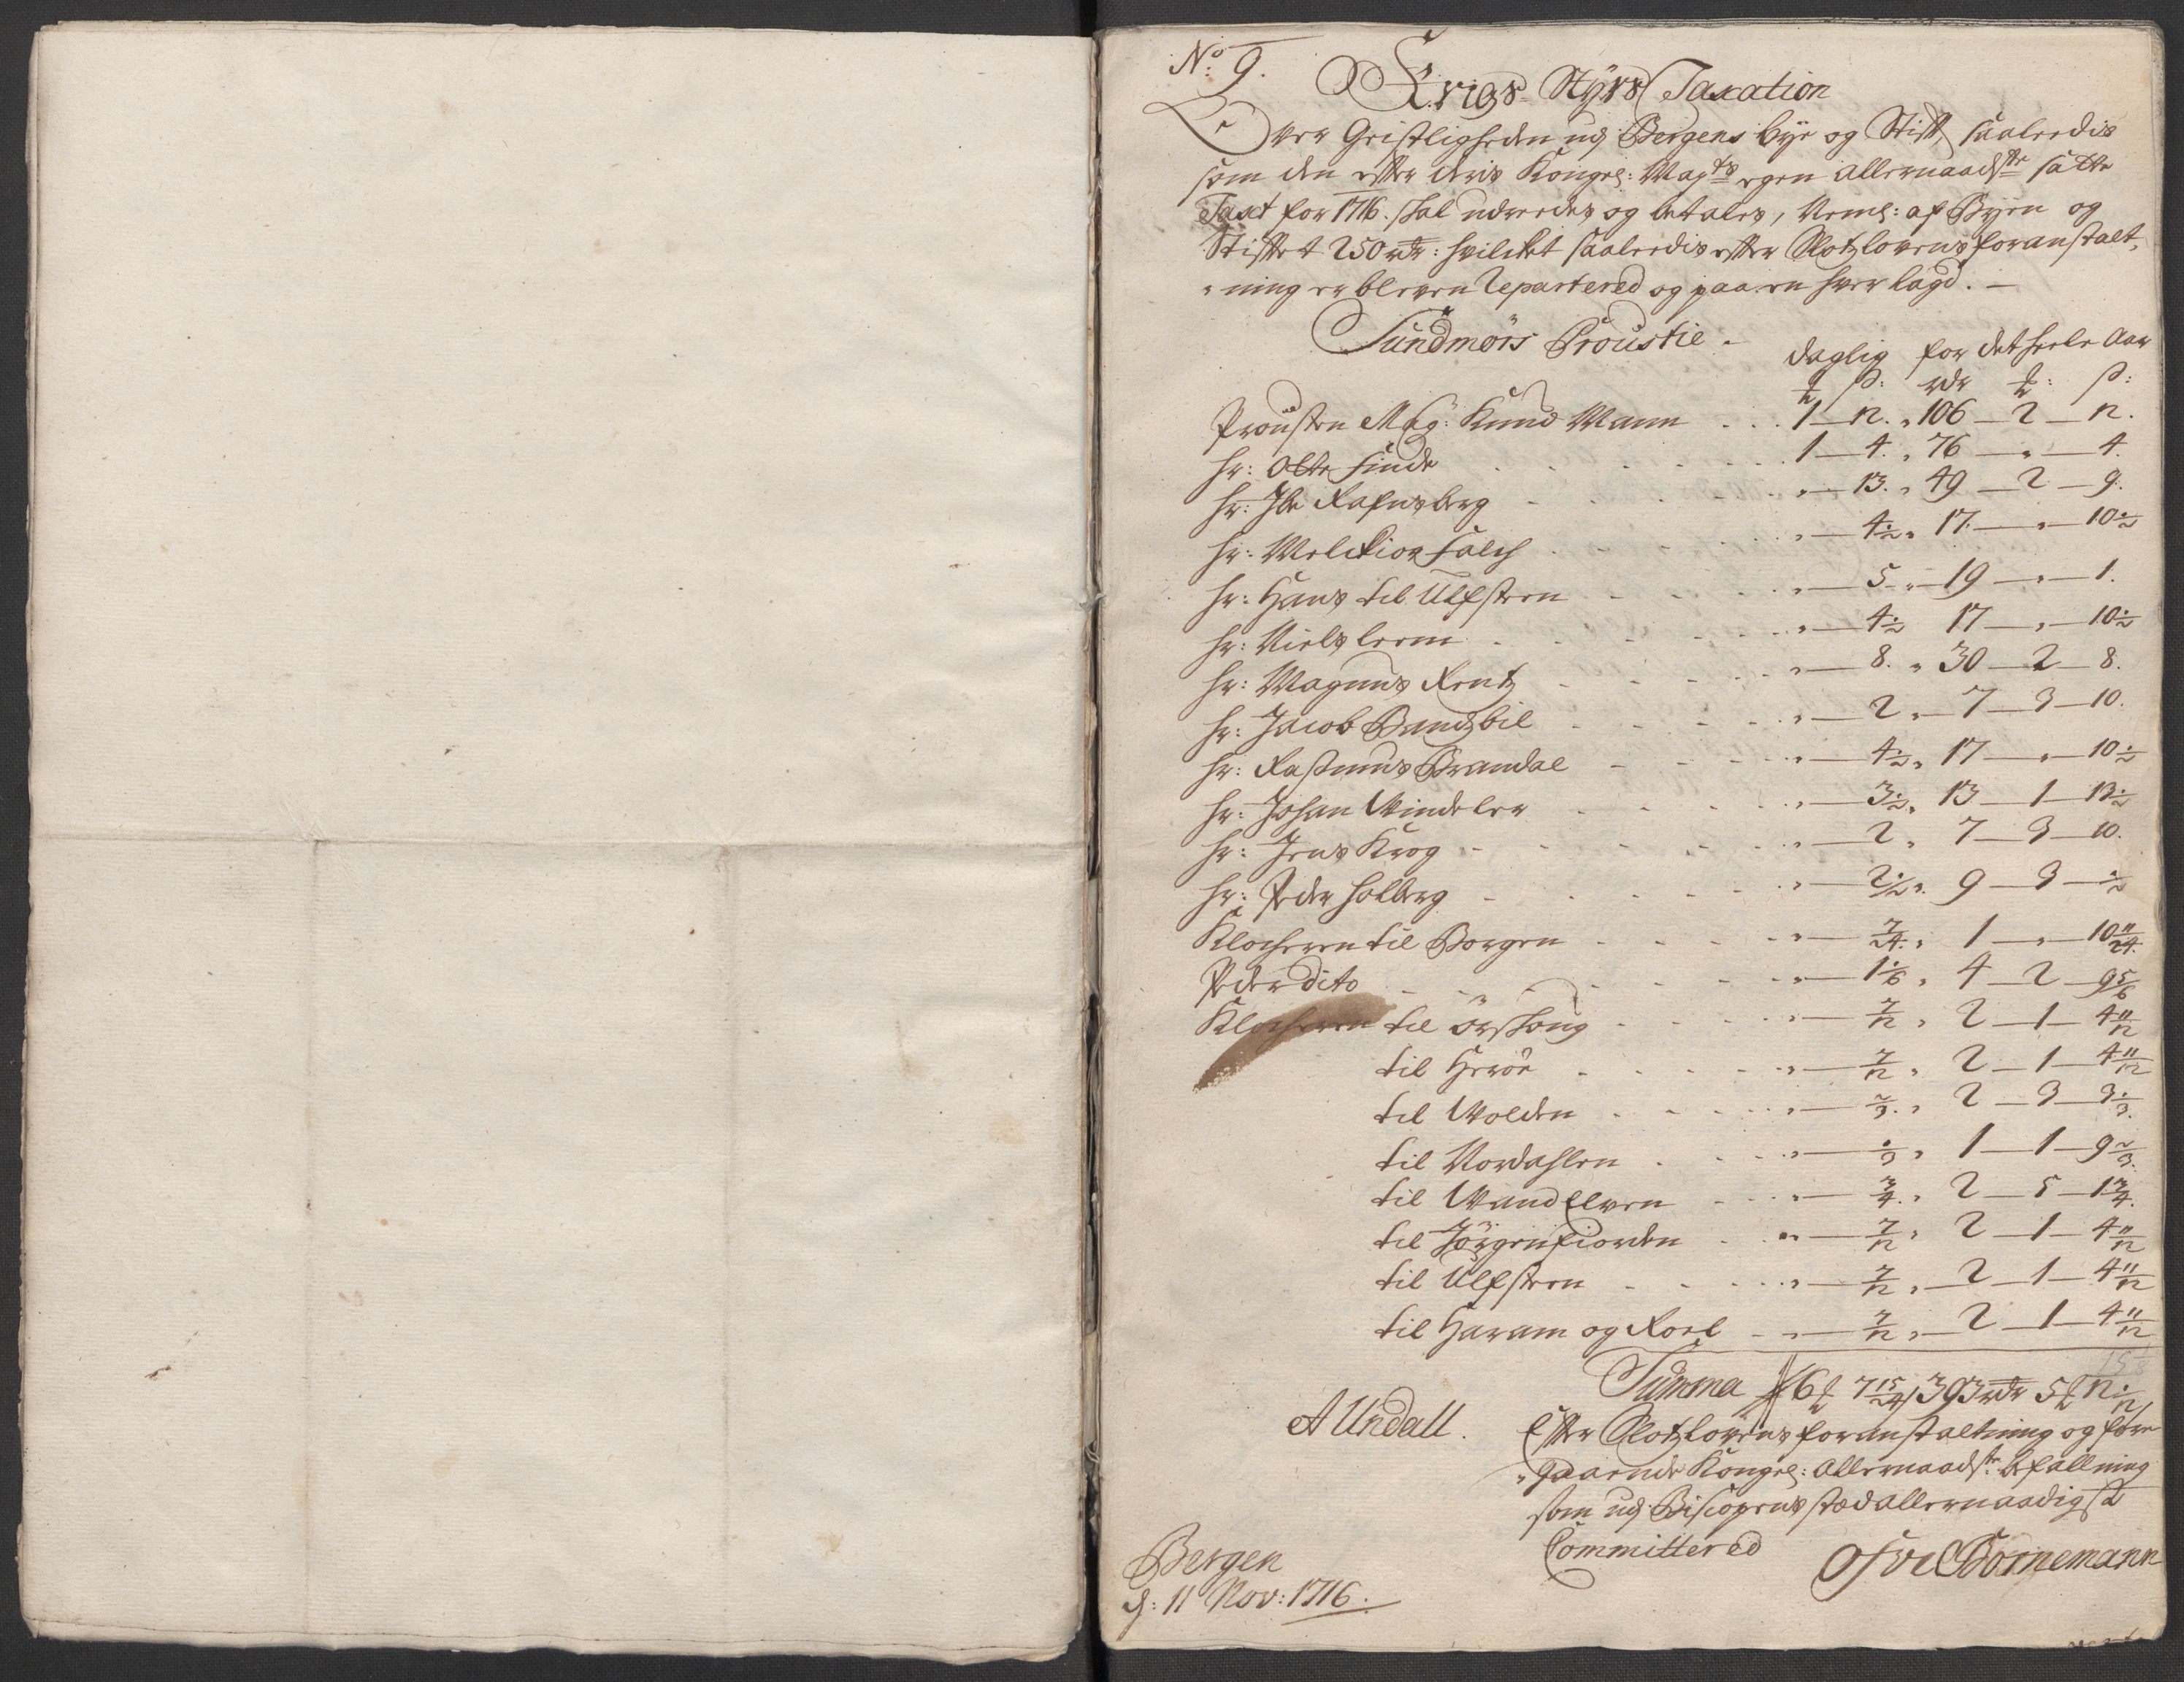 No: 9.
Krigs-Styrs Taxation
Over Geistligheden udj Bergens bye og Stift, saaledis
som den efter deris Kongel: Mayts egen allernaadste satte
Taxt for 1716. skal udreedes og betales, Neml: af Byen og
Stiftet 250 rdr: hvilcket saaledis efter Slotzlovens foranstalt,
„ning er bleven Repartered og paa en hver lagd. —
Sundmörs Proustie.
daglig for det heele Aar
ß: rdr ß:
Prousten Mag: Knud Mann 1 — 12. „ 106 — 2 — 12.
hr: Otte Finde 1 — 4. „ 76 — „ — 4.
hr: Ibe Rafnsberg „ — 13. „ 49 — 2 — 9.
hr: Melchior Falch „ — 4½ „ 17. — „ — 10½
hr: Hans til Ulfsteen „ — 5 „ 19 — „ — 1.
hr: Niels leem „ — 4½ 17 — „ — 10½
hr: Magnus Rentz „ — 8. „ 30 — 2 — 8.
hr: Jacob Bandzbil „ — 2 „ 7 — 3 — 10.
hr: Rasmus Brandal „ — 4½ „ 17 — „ — 10½
hr: Johan Windeler „ — 3½ „ 13 — 1 — 13½
hr: Jens Krog „ — 2 „ 7 — 3 — 10.
hr: Peder holberg „ — 2½ „ 9 — 3 — ½
Klocheren til Borgen „ — 7/24 „ 1 — „ — 10 11/24.
Peder dito „ — 1 1/6 „ 4 — 2 — 9 5/6
Klocheren til örschoug „ — 7/12 „ 2 — 1 — 4 11/12
til Heröe „ — 7/12 „ 2 — 1 — 4 11/12
til Wolden „ — 2/3. „ 2 — 3 — 3 1/3.
til Nordahlen „ — 1/3 „ 1 — 1 — 9 2/3.
til Wandelven „ — 3/4. „ 2 — 5 — 1 3/4.
til Jörgenfiorden „ — 7/12 „ 2 — 1 — 4 11/12
til Ulfsteen „ — 7/12 „ 2 — 1 — 4 11/12
til Haram og Roel „ — 7/12 „ 2 — 1 — 4 11/12
Summa 6 7 15/24 393 rdr 5 12 1/12
A Undall.
Efter Slotzlovens foranstaltning og fore
„gaaende Kongel: allernaadste befallning
som udj Biscopens sted allernaadigst
Committered
Ofve Bornemann
Bergen
d: 11 Nov: 1716.